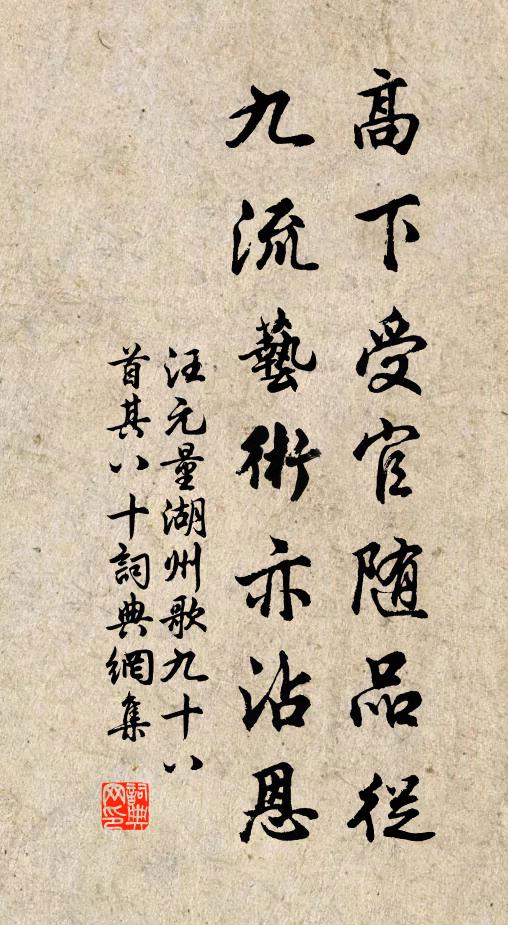 高下受官随品從
九流藝術亦沾恩
汪元量湖州歌九十八
首其八十詞典網集
詞典
网印